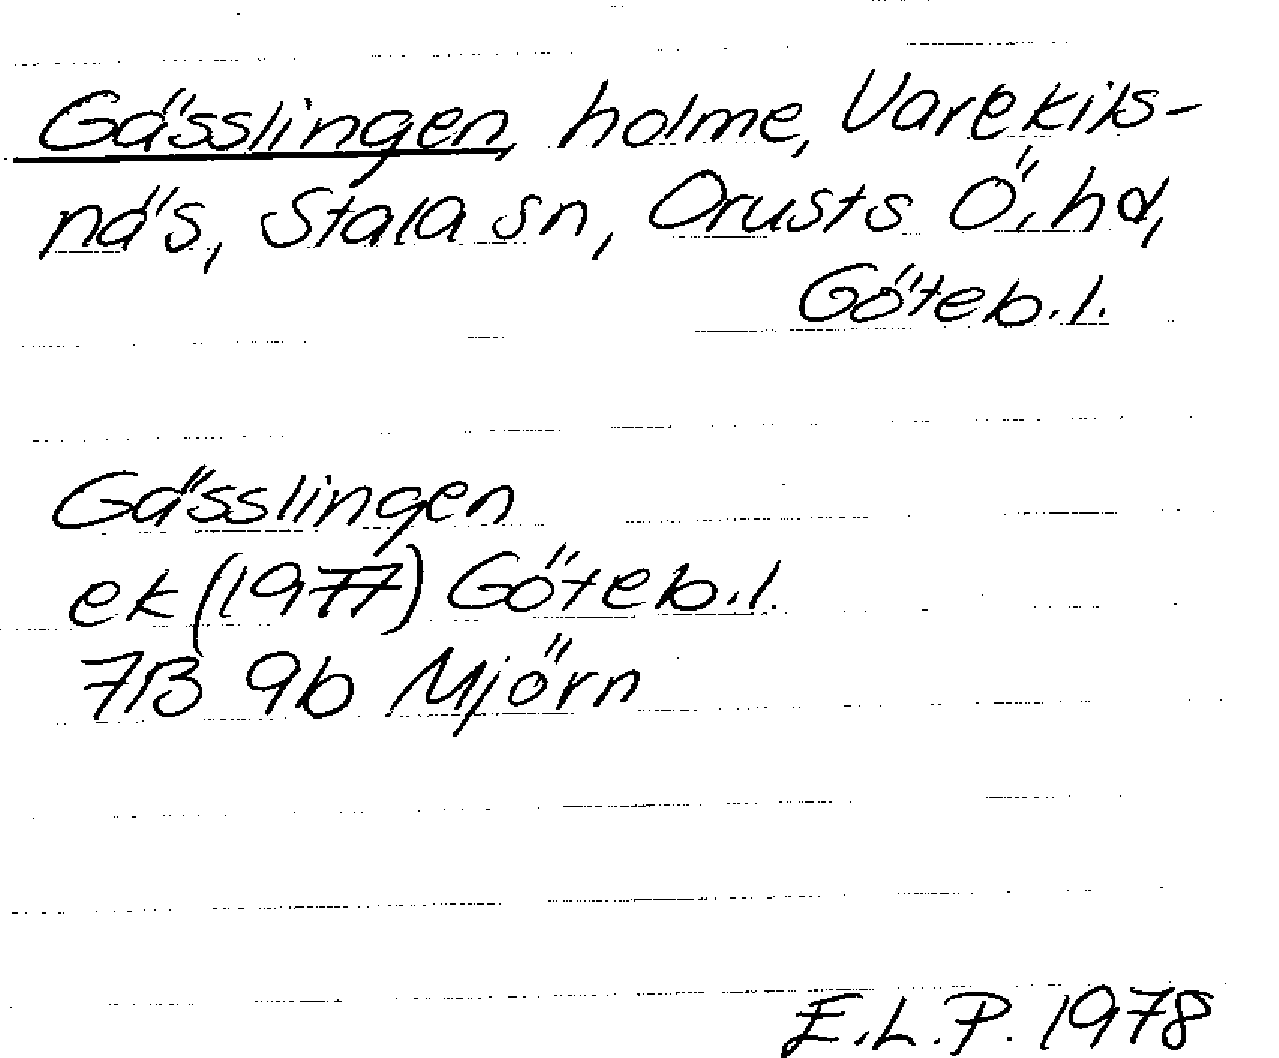 Gässlingen, holme, Varekils-
näs, Stala sn, Orusts Ö. hd,
Göteb. l.
Gässlingen
ek (1977) Göteb. l.
7B 9b Mjörn
E.L.P. 1978